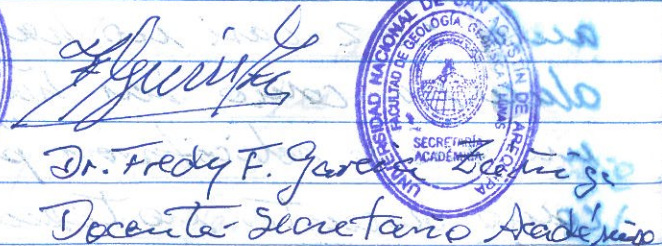 UNIVERSIDAD NACIONAL DE SAN AGUSTIN DE AREQUIPA
FACULTAD DE GEOLOGÍA, GEOFÍSICA Y MINAS
SECRETARÍA
ACADÉMICA
Dr. Fredy F. García Zúñiga
Docente Secretario Académico